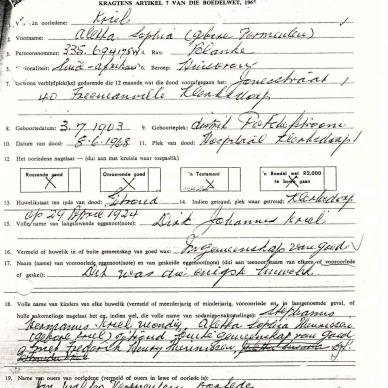 KRAGTENS ARTIKEL 7 VAN DIE BOEDELWET, 1965
van oorledene: Kriel
2. Voorname: Aletta Sophia (gebore Vermeulen)
3. Persoonsnommer: 335 694175W 4. Ras: Blanke
5. nasionaliteit: Suid-Afrikaans 6. Beroep: Huisvrou
7. Gewone verblyfplek(ke) gedurende die 12 maande wat die dood voorafgegaan het: Jonesstraat
40 Freemanville Klerksdorp
8. Geboortedatum: 3.7.1903 9. Geboorteplek: distrik Potchefstroom
10. Datum van dood: 8.6.1968 11. Plek van dood: Hospitaal Klerksdorp
12. Het oorledene nagelaat — (dui aan met kruisie waar toepaslik)
Roerende goed X
Onroerende goed X
'n Testament X
'n Boedel wat R2,000 te bowe gaan X
13. Huwelikstaat ten tyde van dood: Getroud 14. Indien getroud, plek waar getroud: Klerksdorp
op 29 April 1924
15. Volle name van langslewende eggenoot(note): Dirk Johannes Kriel
16. Vermeld of huwelik in of buite gemeenskap van goed was: In gemeenskap van goed
17. Naam (name) van vooroorlede eggenoot(note) en van geskeide eggenoot(note) (dui aan teenoor naam van elkeen of vooroorlede
of geskei): Dit was die enigste huwelik
18. Volle name van kinders van elke huwelik (vermeld of meerderjarig of minderjarig, vooroorlede en, in laasgenoemde geval, of
Stephanus
Hermanus Kriel mondig, Aletta Sophia
(gebore Kriel) getroud buite gemeenskap van goed
Frederik Henry
19. Name van ouers van oorledene (vermeld of ouers in lewe of oorlede is):